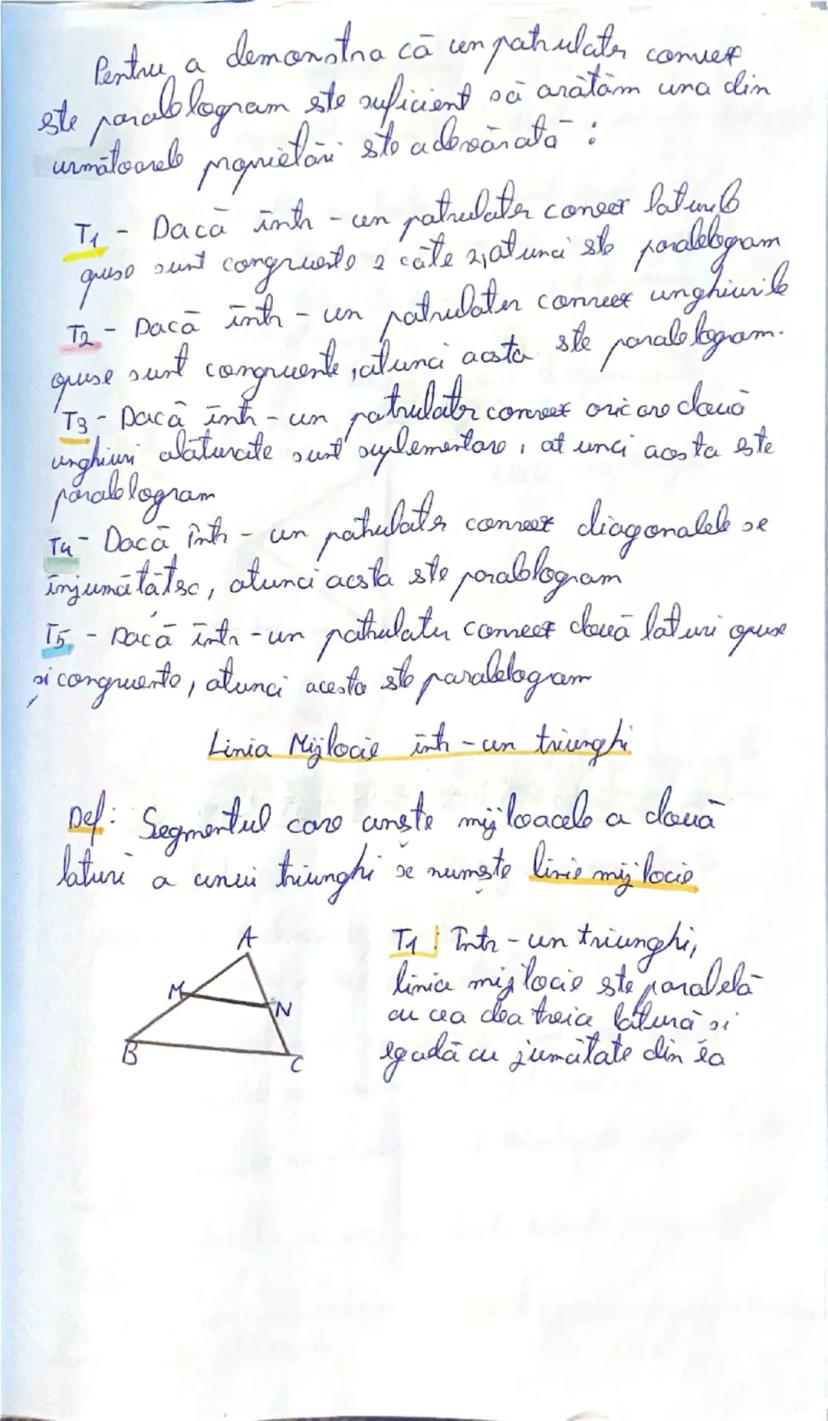 Pentru a demonstra că un patrulater convex
este paralelogram este suficient să arătăm una din
următoarele proprietăți este adevărată :
T1 - Dacă într-un patrulater convex laturile
opuse sunt congruente 2 câte 2, atunci este paralelogram
T2 - Dacă într-un patrulater convex unghiurile
opuse sunt congruente, atunci acesta este paralelogram.
T3 - Dacă într-un patrulater convex oricare două
unghiuri alăturate sunt suplementare, atunci acesta este
paralelogram
T4 - Dacă într-un patrulater convex diagonalele se
înjumătățesc, atunci acesta este paralelogram
T5 - Dacă într-un patrulater convex două laturi opuse
și congruente, atunci acesta este paralelogram
Linia Mijlocie într-un triunghi
Def: Segmentul care unește mijloacele a două
laturi a unui triunghi se numește linie mijlocie
A
M
N
B
C
T1 Într-un triunghi,
linia mijlocie este paralelă
cu cea dea treia latură și
egală cu jumătate din ea